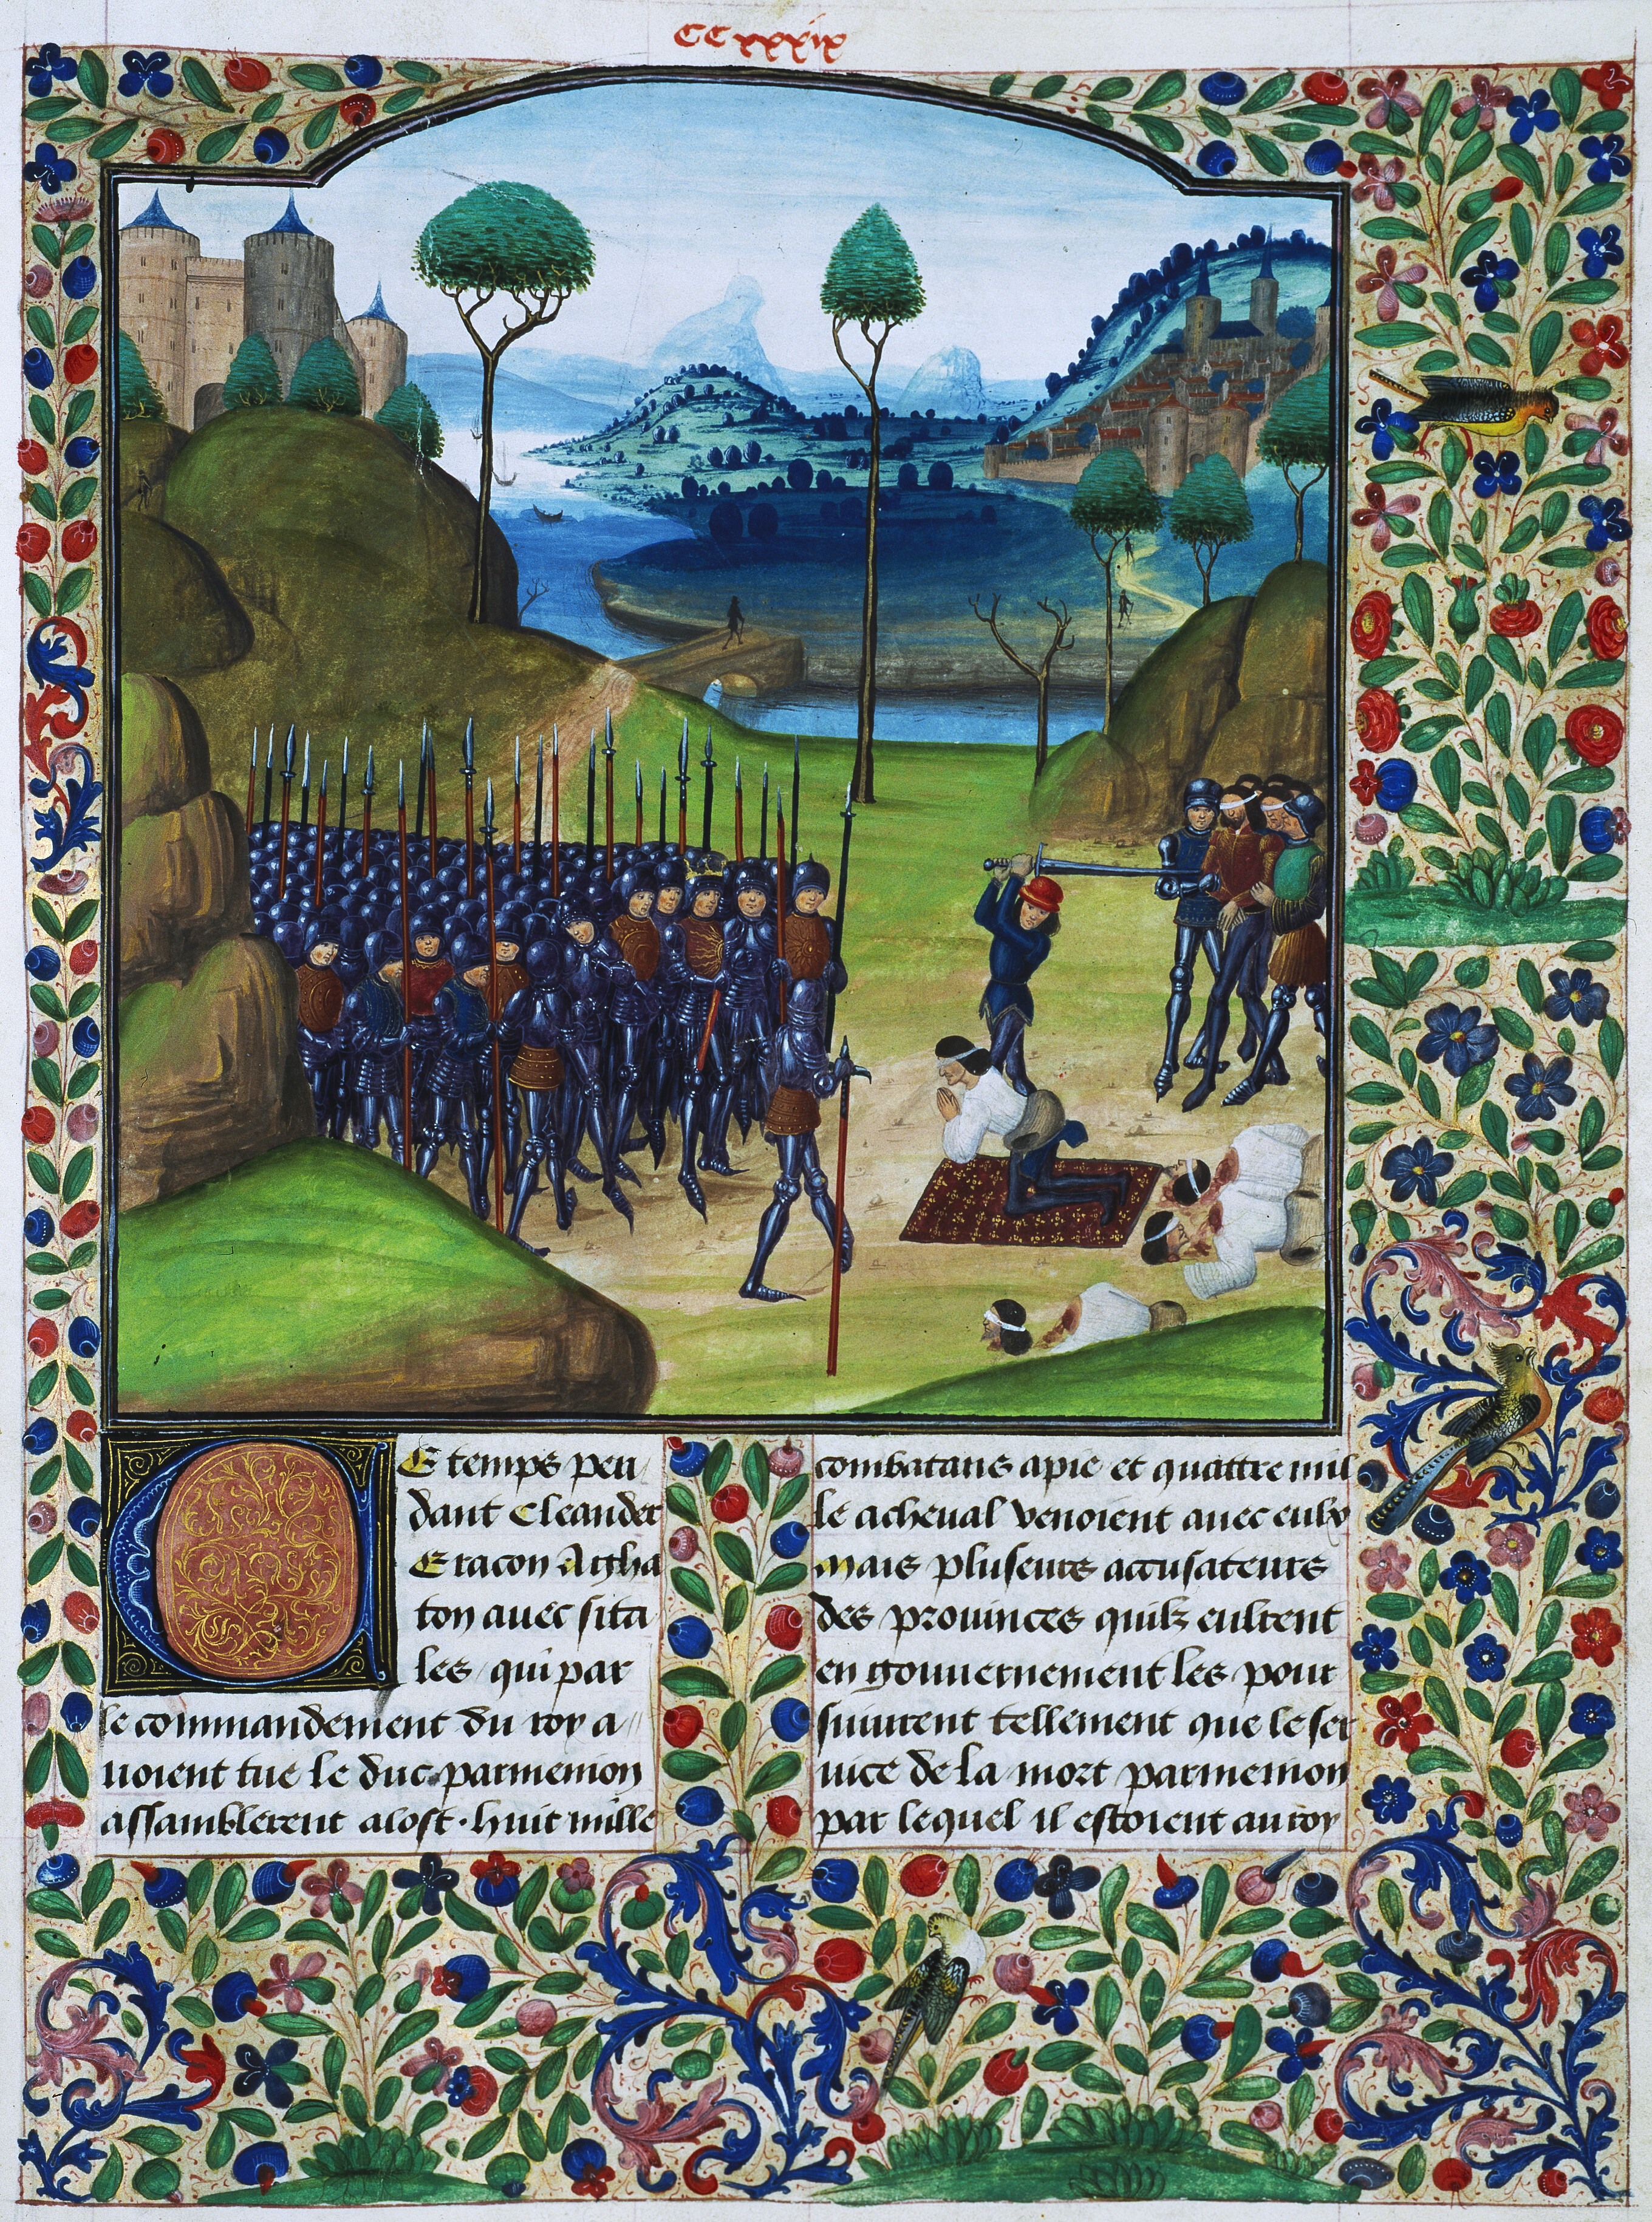 CCxxxix
E temps pen
dant Cleander
Eracon Agha
ton avec sita
les qui par
le commandement du roy a
voient tue le duc parmenion
assamblerent a lost. huit mille
combatans a pie et quattre mil
le a cheval venoient avec eulx
Mais pluseurs accusateurs
des provinces quilz eulrent
en gouvernement les pour
suiurent tellement que le ser
vice de la mort parmenion
par lequel il estoient au roy